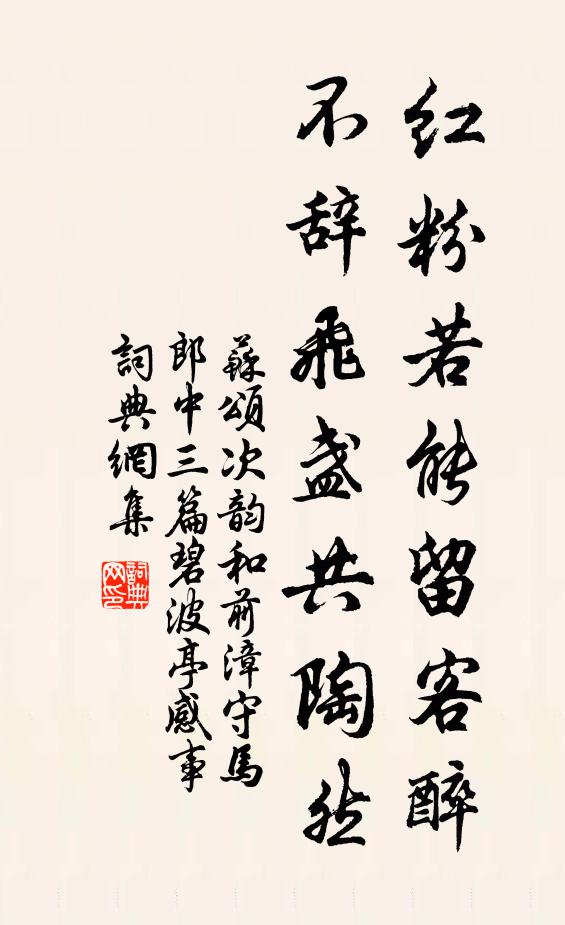 红粉若能留客醉
不辞飛盏共陶然
蘇頌次韵和前漳守馬
郎中三篇碧波亭感事
詞典網集
詞典网印